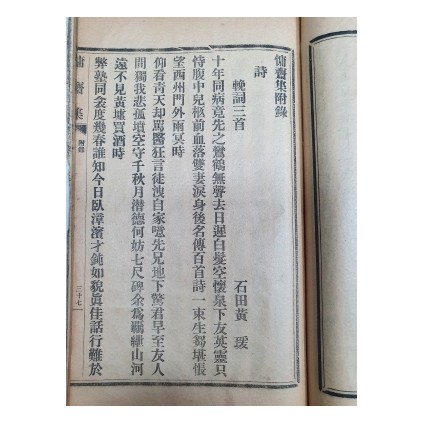 慵齋集附錄
詩
輓詞三首
石田黃瑗
十年同病竟先之鸞鶴無聲去日遲白髮空懷泉下友英靈只
恃腹中兒柩前血落雙妻淚身後名傳百首詩一束生芻堪悵
望西州門外雨冥時
仰看靑天却罵醫狂言徒洩自家噫先兄地下驚君早至友人
間獨我悲孤墳空守千秋月潜德何妨七尺碑余爲羈紲山河
遠不見黃壚買酒時
弊塾同衾度幾春誰知今日臥漳濱才鈍如貌眞佳話行難於
慵齋集
附錄
三十七